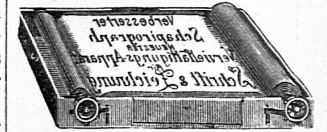 Verbesserter
Schapirograph
Neuester
Vervielfältigungs-Apparat
für
Schrift & Zeichnung